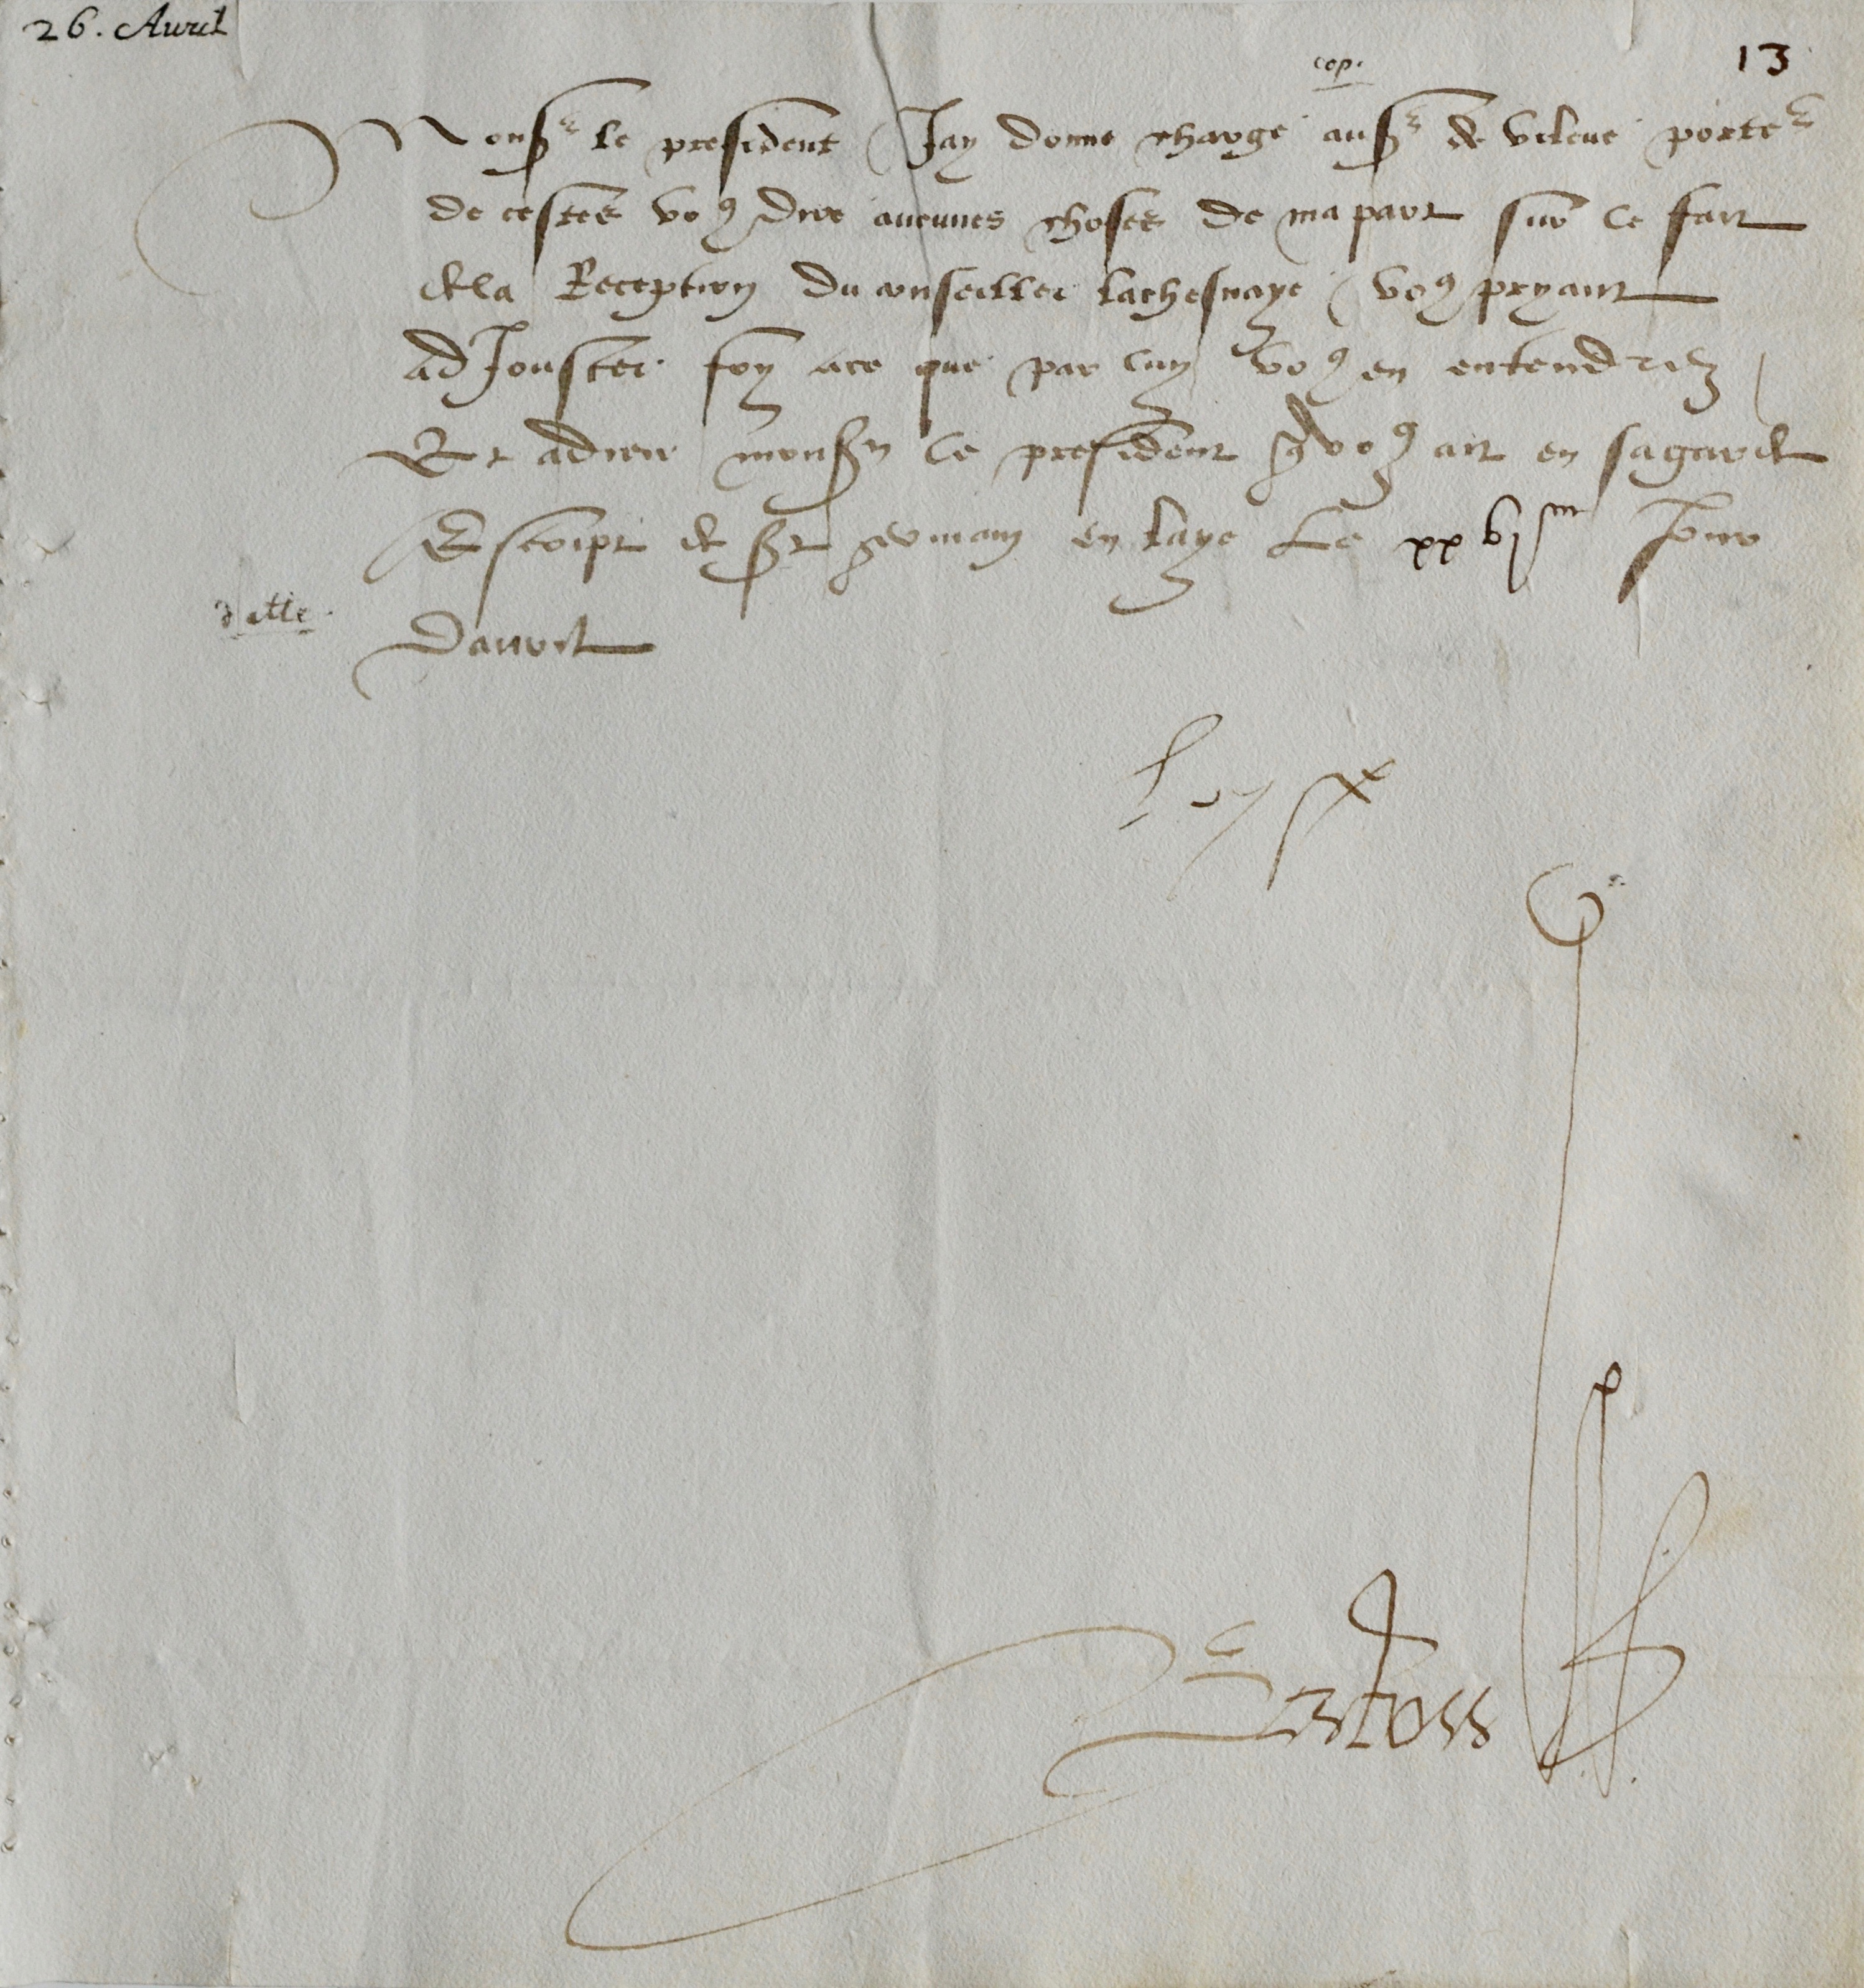 26. Avril
13
cop.
Monsr le president Jay donne charge ausr de Veleve porter
de cestes vo9 dire aucunes choses de mapart sur le fait
dela Reception du conseiller lachesnaye vo9 pryant
adJouster foy ace que par luy vo9 en entendrez
Et adieu monsr le president q vo9 ait en sagarde
Escript de St germain en laye Le xxvjme Jour
datte
davril
Loyse